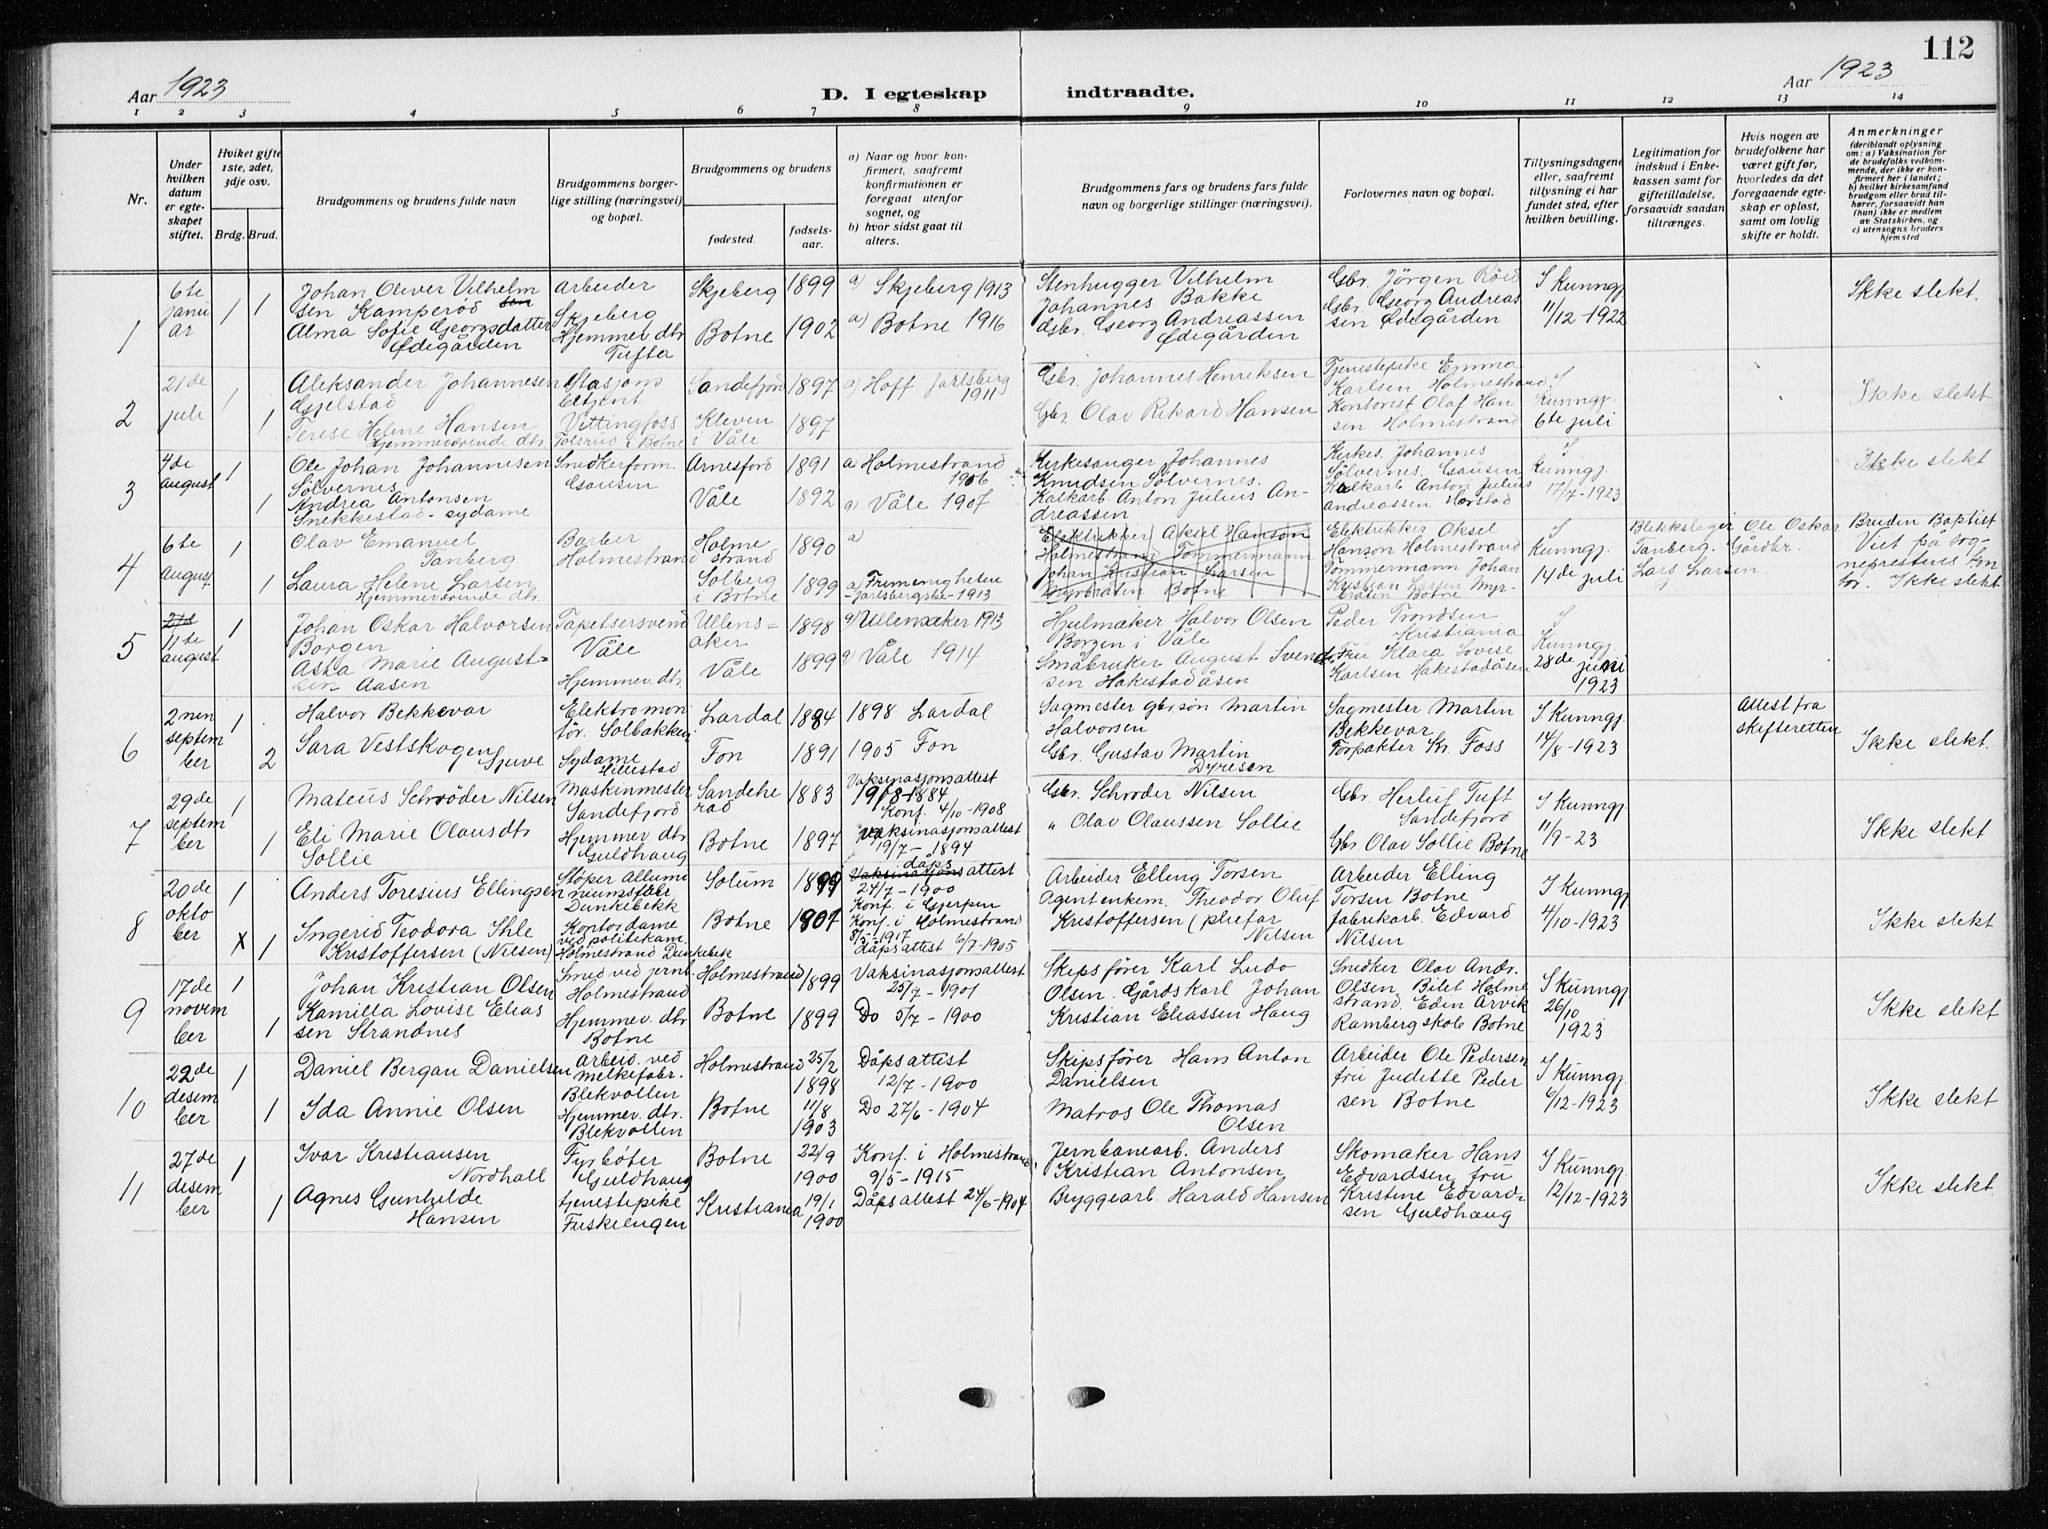 112
Aar 1923
D. I egteskap indtraadte.
Aar 1923
1 2 3 4 5 6 7 8 9 10 11 12 13 14
Nr.
Under hvilken datum er egteskapet stiftet.
Hviket gifte 1ste, 2det, 3dje osv.
Brdg. Brud.
Brudgommens og brudens fulde navn
Brudgommens borgerlige stilling (næringsvei) og bopæl.
Brudgommens og brudens
fødested.
fødselsaar.
a) Naar og hvor konfirmert, saafremt konfirmationen er foregaat utenfor sognet, og
b) hvor sidst gaat til alters.
Brudgommens fars og brudens fars fulde navn og borgerlige stillinger (næringsvei).
Forlovernes navn og bopæl.
Tillysningsdagene eller, saafremt tillysning ei har fundet sted, efter hvilken bevilling.
Legitimation for indskud i Enkekassen samt for giftetilladelse, forsaavidt saadan tiltrænges.
Hvis nogen av brudefolkene har været gift før, hvorledes da det foregaaende egteskap er opløst, samt om lovlig skifte er holdt.
Anmerkninger
(deriblandt oplysning om: a) Vaksination for de brudefolks vedkommende, der ikke er konfirmert her i landet; b) hvilket kirkesamfund brudgom eller brud tilhører, forsaavidt han (hun) ikke er medlem av Statskirken, og c) utensogns bruders hjemsted
1
6te januar
1 1
Johan Oliver Vilhelmsen Kamperød
Alma Sofie Georgsdatter Ødegården
Arbeider Skjeberg
Hjemmev. dtr. Tufta
Skjeberg 1899
Botne 1902
a) Skjeberg 1913
a) Botne 1916
Stenhugger Vilhelm Johannes Bakke
Gbr. Georg Andreassen Ødegården
Gbr. Jörgen Röed
Gbr. Georg Andreassen Ødegården
I Kunngj. 11/12-1922
Ikke slekt.
2
21de juli
1 1
Aleksander Johannesen Gjelstad
Terese Helene Hansen
Hjemmeværende dtr.
Stasjons betjent Vittingfoss
Tolsrud i Botne
Sandefjord 1897
Kleven i Våle 1897
a) Hoff Jarlsberg 1911
Gbr. Johannes Henriksen
Gbr. Olav Rikard Hansen
Tjenestepike Emma Karlsen Holmestrand
Kontorist Olaf Hansen Holmestrand
I Kunngj. 6te juli
Ikke slekt
3
4de august
1 1
Ole Johan Johannesen Sölvernes
Andrea Antonsen Snekkestad - sydame
Snedkerform. Gausen
Arnesford 1891
Våle 1892
a Holmestrand 1906
a) Våle 1907
Kirkesanger Johannes Knudsen Sölvernes.
Kalkarb. Anton Julius Andreassen
Kirkes. Johannes Sölvernes, Gausen
Kalkarb Anton Julius Andreassen Horstad
I Kunngj. 17/7-1923
Ikke slekt
4
6te august
1 1
Olav Emanuel Tanberg
Laura Helene Larsen
Hjemmeværende dtr.
Barber Holmestrand
Holmestrand 1890
Solberg i Botne 1899
a)
a) Frimenigheten - Jarlsbergske - 1913
Elektrikker Aksel Hanson
Holmestrand Tömmermann
Johan Kristian Larsen
Myrbråten Botne
Elektrikker Aksel Hanson Holmestrand
Tömmermann Johan Kristian Larsen Myrbråten Botne
I Kunngj. 14de juli
Blekkslager Ole Oskar Tanberg. Gårdbr. Lars Larsen
Bruden Baptist
Viet på sogneprestens kontor. Ikke slekt
5
11te august
1
Johan Oskar Halvorsen Borgen
Asta Marie Augustsen Aasen
Tapetsersvend Våle
Hjemmev. dtr.
Ullensaker 1898
Våle 1899
a) Ullensaker 1913
a) Våle 1914
Hjulmaker Halvor Olsen Borgen i Våle
Småbruker August Svendsen Hakestadåsen
Peder Trondsen Kristiania
Fru Klara Lovise Karlsen Hakestadåsen
I Kunngj. 28de juni 1923
6
2nen september
1 2
Halvor Bekkevar
Sara Vestskogen Gjuve
Elektromontör. Solbakken
Sydame Hillestad
Lardal 1884
Fon 1891
1898 Lardal
1905 Fon
Sagmester gbr.sön Martin Halvorsen
Gbr. Gustav Martin Dyresen
Sagmester Martin Bekkevar
Forpakter Kr. Foss
I Kunngj. 14/8-1923
Attest fra skifteretten
Ikke slekt.
7
29de september
1 1
Mateus Schrøder Nilsen
Eli Marie Olausdtr Sollie
Maskinmester Sandefjord
Hjemmev. dtr. Guldhaug
Sandeherad 1883
Botne 1897
Vaksinasjonsattest 19/8-1884
Konf. 4/10-1908
Vaksinasjonsattest 19/7-1894
Gbr. Schrøder Nilsen
" Olav Olaussen Sollie
Gbr. Herluf Tuft Sandefjord
Gbr. Olav Sollie Botne
I Kunngj. 11/9-23
Ikke slekt
8
20de oktober
1 x 1
Anders Toresius Ellingsen
Ingerid Teodora Ihle Kristoffersen (Nilsen)
Støper alluminiumsfabr. Dunkebekk
Kontordame ved politikam. Holmestrand Dunkebek
Solum 1899
Botne 1901
Vaksinasjons dåpsattest 24/7-1900
Konf. i Gjerpen
Konf. i Holmestrand 8/5-1917
Dåpsattest 6/7-1905
Arbeider Elling Torsen
Agent enkem. Theodor Oluf Kristoffersen (plrefar Nilsen
Arbeider Elling Torsen Botne
Fabrikarb. Edvard Nilsen
I Kunngj. 4/10-1923
Ikke slekt
9
17de november
1 1
Johan Kristian Olsen
Kamilla Lovise Eliassen Strandnes
Smed ved jernb. Holmestrand
Hjemmev. dtr. Botne
Holmestrand 1899
Botne 1899
Vaksinasjonsattest 25/7-1901
Do 5/7-1900
Skipsfører Karl Ludo Olsen. Gårdskarl Johan Kristian Eliassen Haug
Snedker Olav Andr. Olsen, Bilet Holmestrand. Edin Arvik Ramberg skole Botne
I Kunngj. 26/10 1923
Ikke slekt
10
22de desember
1 1
Daniel Bergan Danielsen
Ida Annie Olsen
Arbeid. ved melkefabr. Blekvollen
Hjemmev. dtr. Blekvollen
Holmestrand 25/2 1898
Botne 11/8 1903
Dåpsattest 12/7-1900
Do 27/6-1904
Skipsfører Hans Anton Danielsen
Matros Ole Thomas Olsen
Arbeider Ole Pedersen
fru Judette Pedersen Botne
I Kunngj. 6/12-1923
Ikke slekt
11
27de desember
1 1
Ivar Kristiansen Nordhall
Agnes Gunhilde Hansen
Fyrbøter Guldhaug
tjenestepike Fuskeengen
Botne 22/9 1900
Kristiania 19/1 1900
Konf. i Holmestrand 9/5-1915
Dåpsattest 24/6-1904
Jernbanearb. Anders Kristian Antonsen
Bryggearb. Harald Hansen
Skomaker Hans Edvardsen, fru Kristine Edvardsen Guldhaug
I Kunngj. 12/12-1923
Ikke slekt.